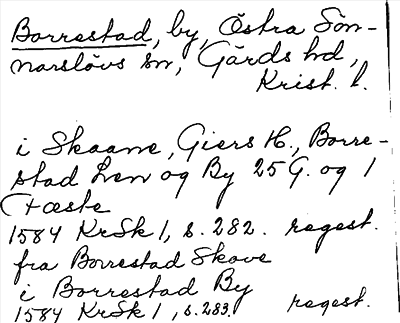 Borrestad, by, Östra Sön-
narslövs sn, Gärds hd,
Krist. l.
i Skaane, Giers H., Borre-
stad Len og By 25 G. og 1
Fæste
1584 KrSk 1, s. 282. regest.
fra Borrestad Skove
i Borrestad By
1584 KrSk 1, s. 283. regest.